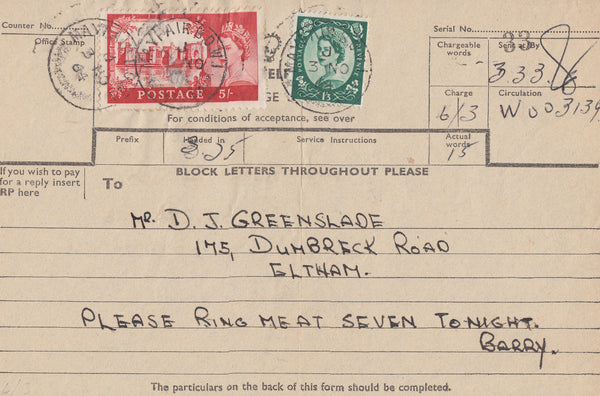 Counter No.
Serial No.
Office Stamp
Chargeable words
Sent at/By
33
3.33.
POSTAGE 5/-
1/3
For conditions of acceptance, see over
Charge
6/3
Circulation
W003139
Prefix
Handed in
3.25
Service Instructions
Actual words
15
If you wish to pay
for a reply insert
RP here
BLOCK LETTERS THROUGHOUT PLEASE
To
Mr. D. J. GREENSLADE
175, DUMBRECK ROAD
ELTHAM.
PLEASE RING ME AT SEVEN TONIGHT.
BARRY.
6/3
The particulars on the back of this form should be completed.